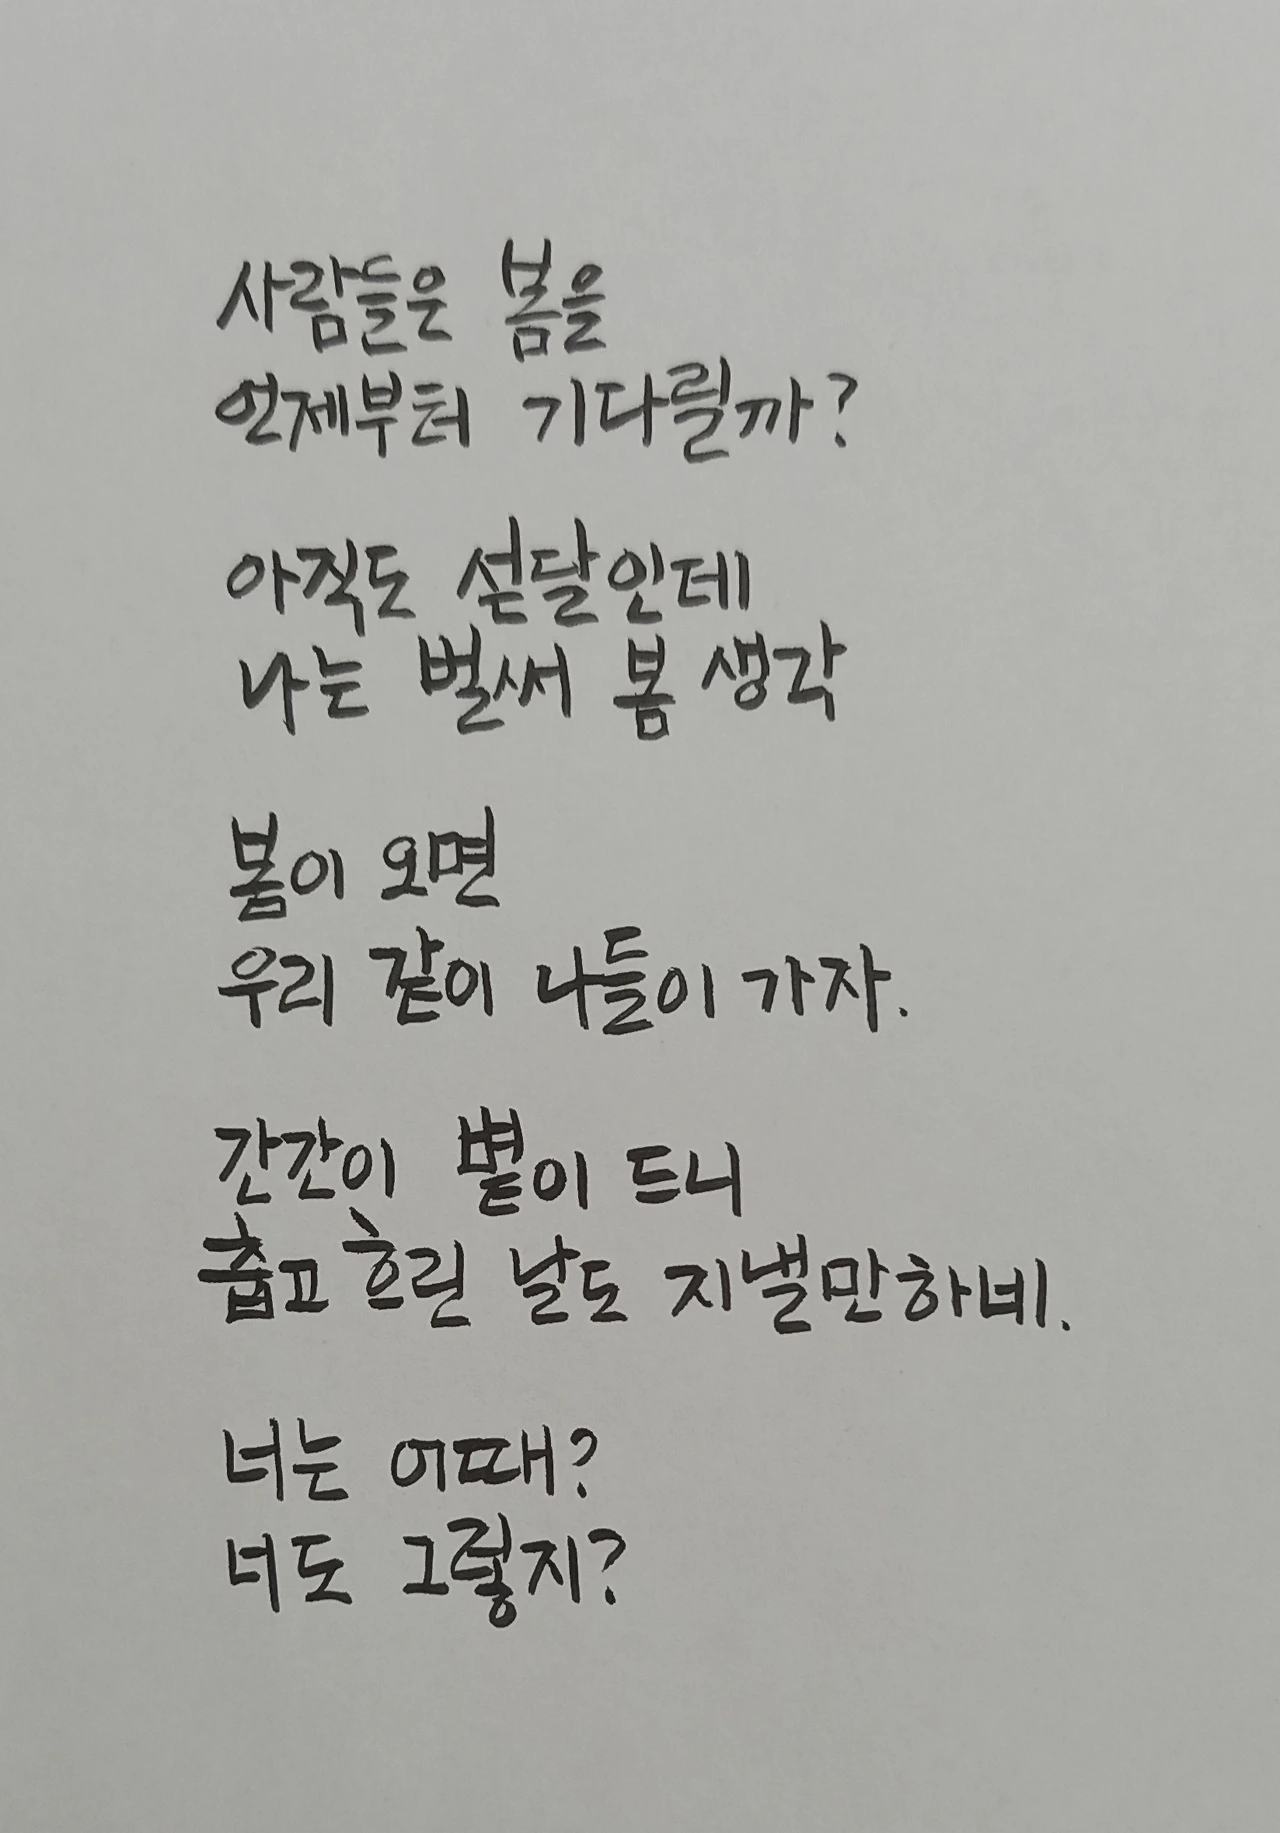 사람들은 봄을
언제부터 기다릴까?
아직도 섣달인데
나는 벌써 봄 생각
봄이 오면
우리 같이 나들이 가자.
간간이 볕이 드니
춥고 흐린 날도 지낼만하네.
너는 어때?
너도 그렇지?